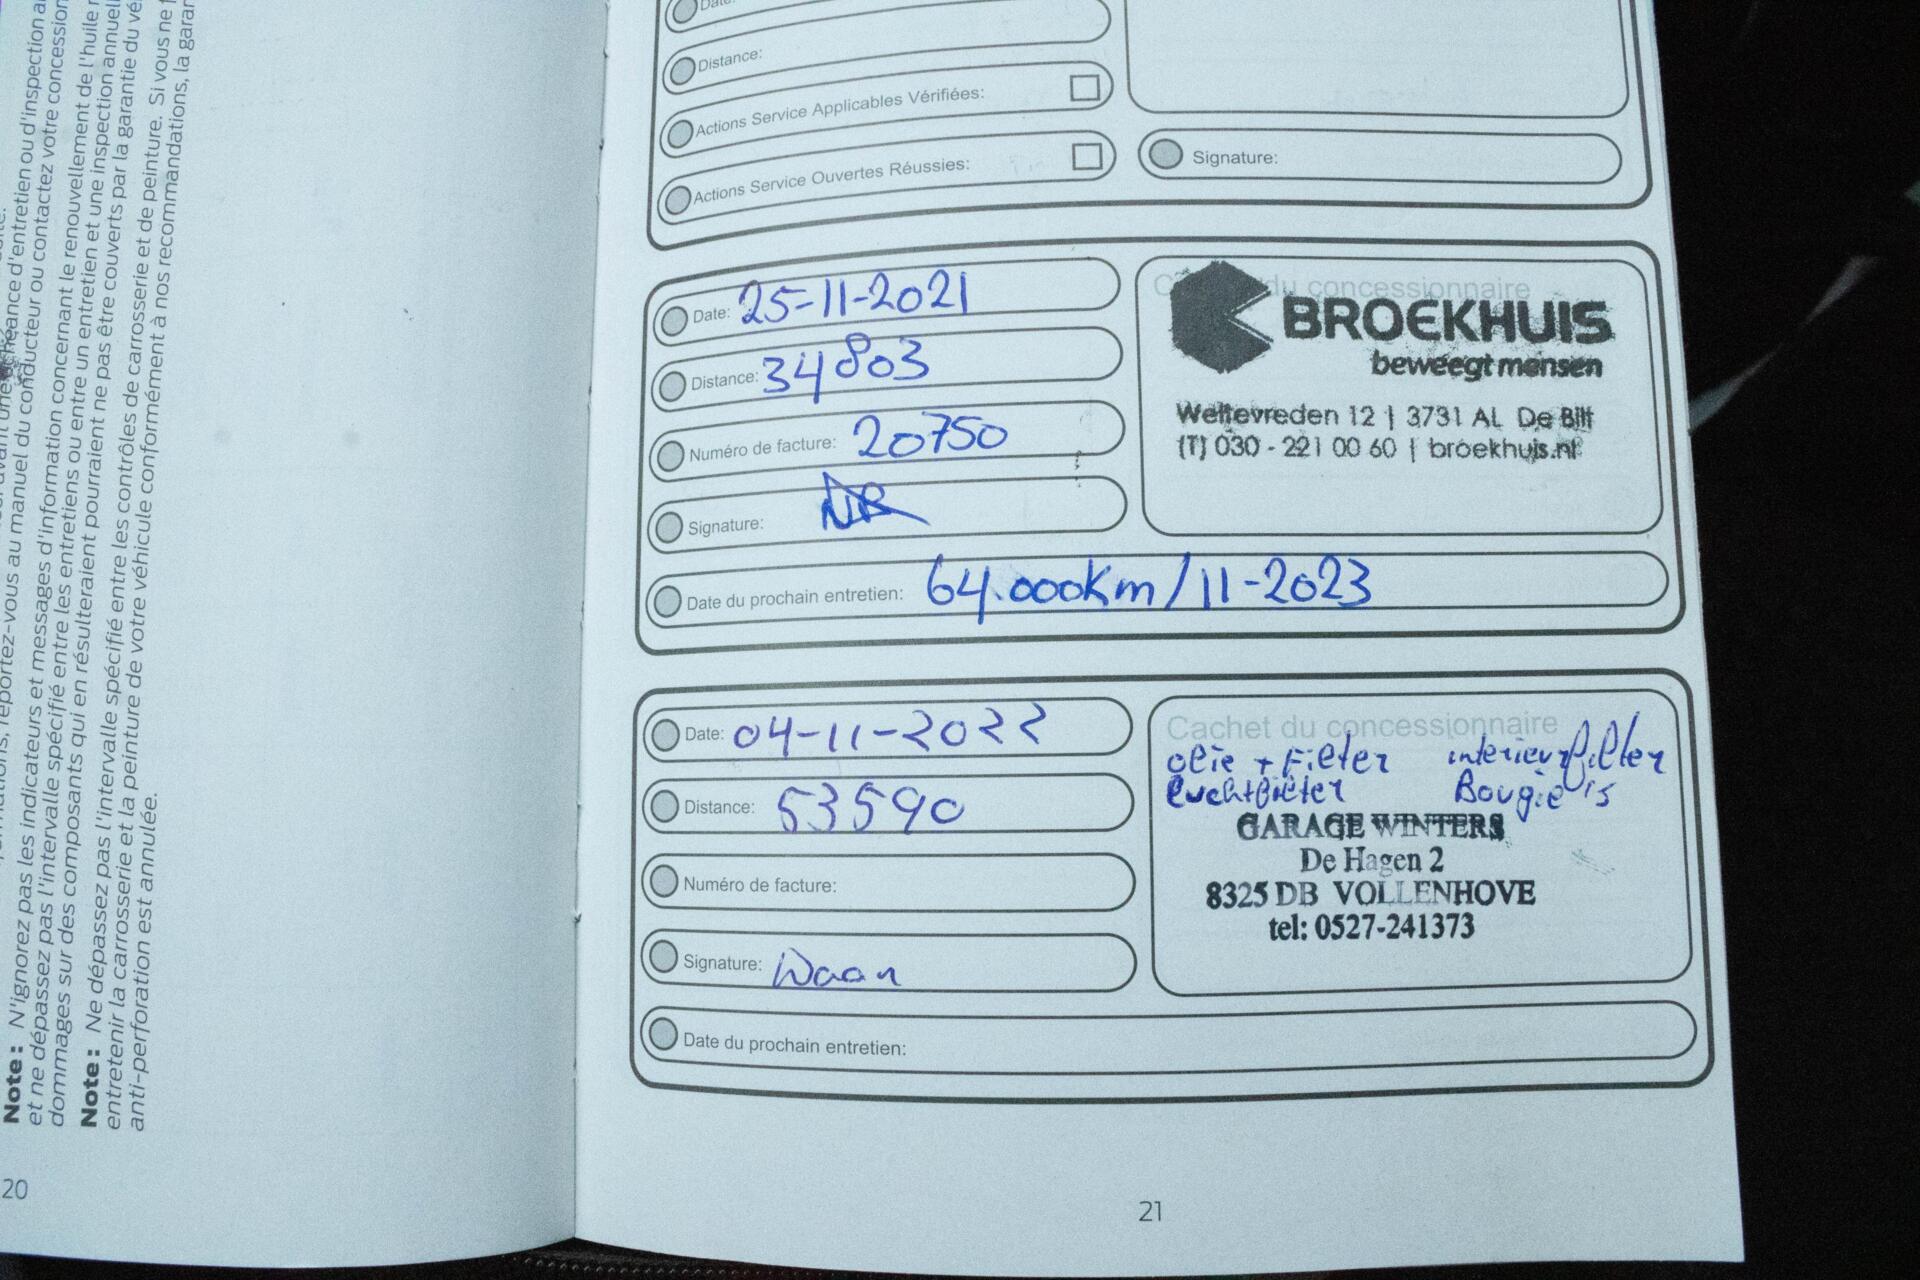 Note : N'ignorez pas les indicateurs et messages d'information concernant le renouvellement de l'huile
et ne dépassez pas l'intervalle spécifié entre les entretiens ou entre un entretien et une inspection annuel
dommages sur des composants qui en résulteraient pourraient ne pas être couverts par la garantie du
Note : Ne dépassez pas l'intervalle spécifié entre les contrôles de carrosserie et de peinture. Si vous ne
entretenir la carrosserie et la peinture de votre véhicule conformément à nos recommandations, la
anti-perforation est annulée.
20
Date:
Distance:
Actions Service Applicables Vérifiées:
Actions Service Ouvertes Réussies:
Signature:
Date: 25-11-2021
Distance: 34803
Numéro de facture: 20750
Signature:
Date du prochain entretien: 64.000km/11-2023
Cachet du concessionnaire
BROEKHUIS
beweegt mensen
Weltevreden 12 | 3731 AL De Bilt
(T) 030 - 221 00 60 | broekhuis.nl
Date: 04-11-2022
Distance: 53590
Numéro de facture:
Signature: Daan
Date du prochain entretien:
Cachet du concessionnaire
olie + Filter interieurfilter
luchtfilter Bougie's
GARAGE WINTERS
De Hagen 2
8325 DB VOLLENHOVE
tel: 0527-241373
21